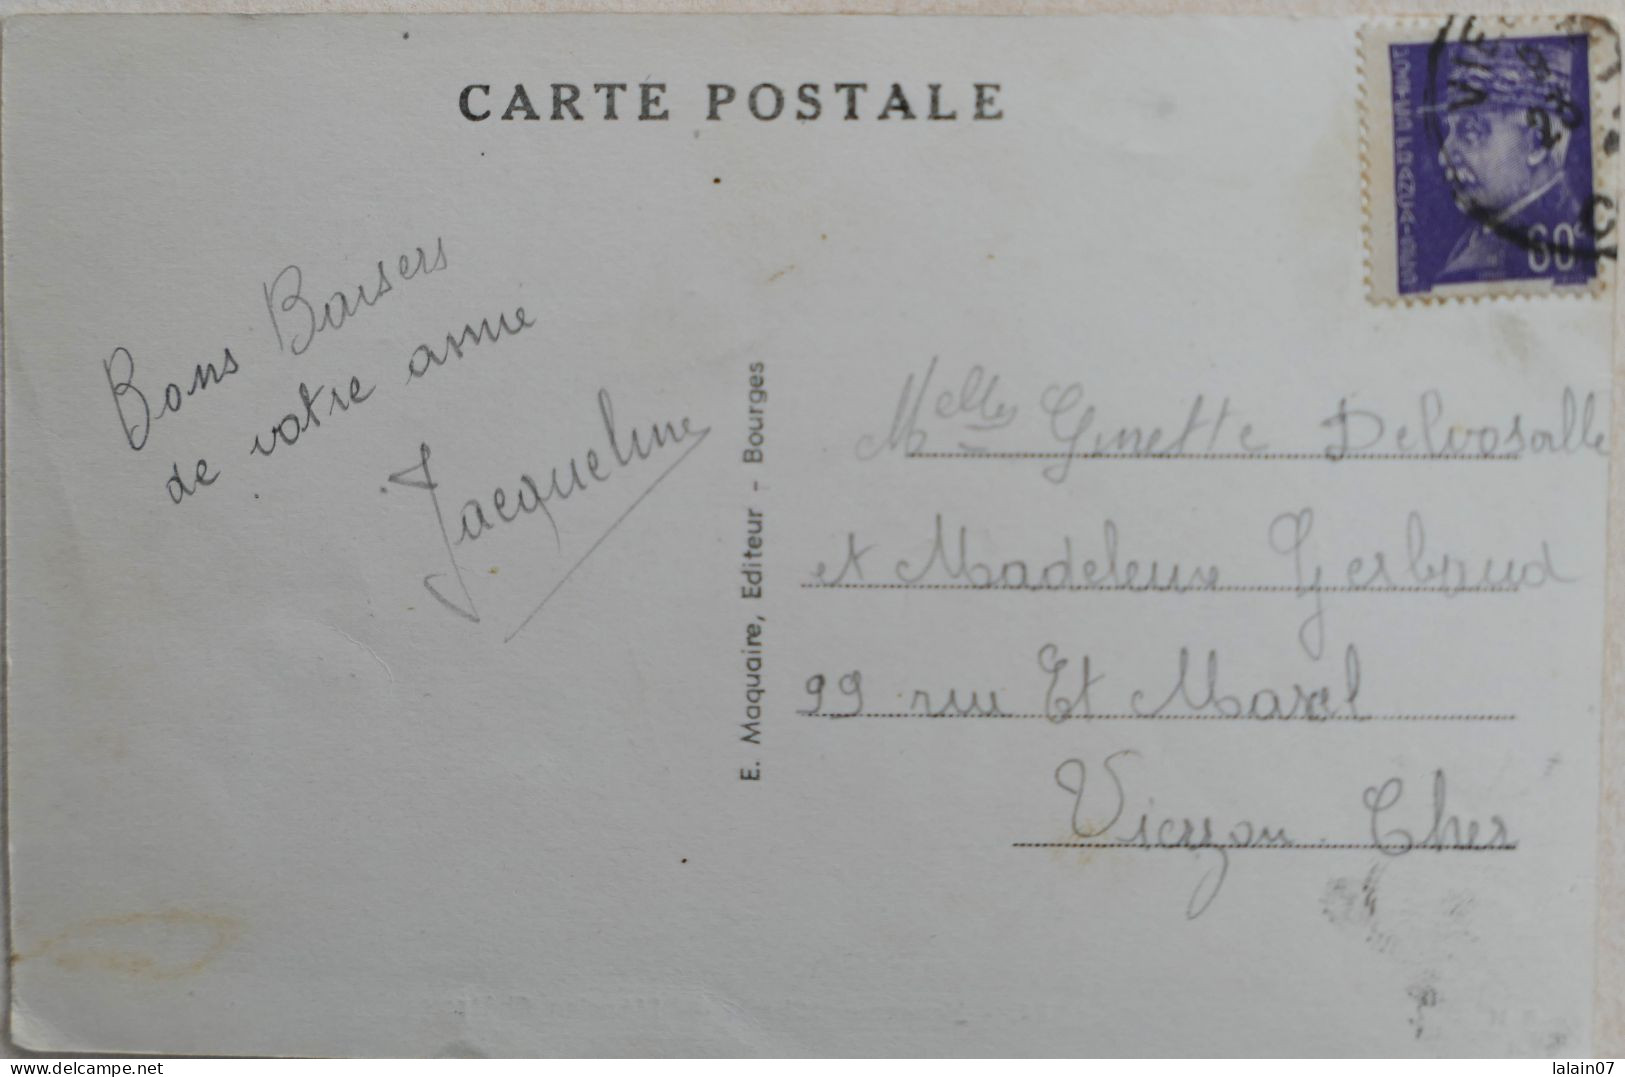 CARTE POSTALE
60c
Bons Baisers
de votre amie
Jacqueline
E. Maquaire, Editeur - Bourges
Melles Ginette Delvosalle
et Madeleine Gerbaud
99 rue Et Marcel
Vierzon Cher
delcampe.net
lalain07